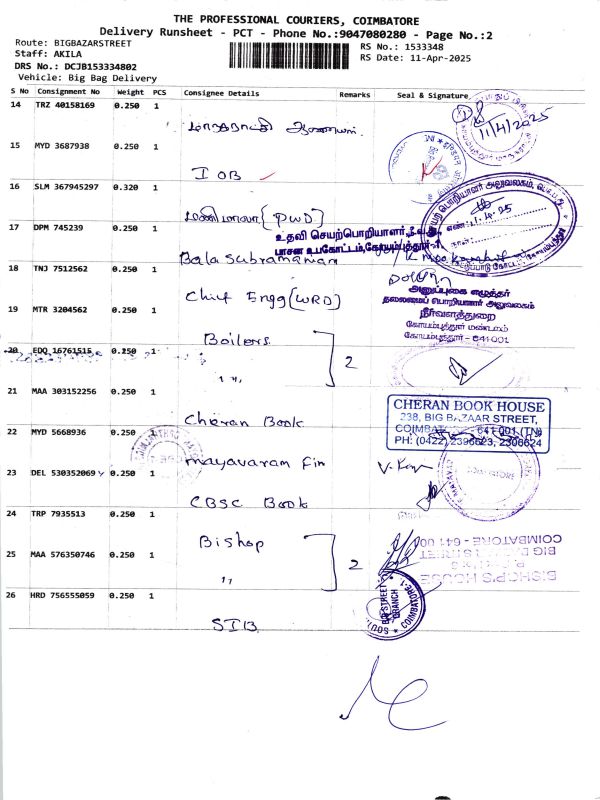 THE PROFESSIONAL COURIERS, COIMBATORE
Delivery Runsheet - PCT - Phone No.:9047080280 - Page No.:2
Route: BIGBAZARSTREET
RS No.: 1533348
Staff: AKILA
RS Date: 11-Apr-2025
DRS No.: DCJB153334802
Vehicle: Big Bag Delivery
S No Consignment No Weight PCS Consignee Details Remarks Seal & Signature
14 TRZ 40158169 0.250 1
11/4/2025
15 MYD 3687938 0.250 1
IOB
16 SLM 367945297 0.320 1
(PWD)
17 DPM 745239 0.250 1
உதவி செயற்பொறியாளர்,நீ.வ.து.,
பாசன உபகோட்டம்,கோயம்புத்தூர்-1
Bala Subramanian
18 TNJ 7512562 1
Chief Engg (WRD)
அனுப்புகை எழுத்தர்
தலைமைப் பொறியாளர் அலுவலகம்
நீர்வளத்துறை
கோயம்புத்தூர் மண்டலம்
கோயம்புத்தூர் - 641 001
19 MTR 3204562 0.250 1
Boilers
20 EDQ 16761515 0.250 1
" 2
21 MAA 303152256 0.250 1
Cheran Book
CHERAN BOOK HOUSE
238, BIG BAZAAR STREET,
COIMBATORE - 641 001 (TN)
PH: (0422) 2396623, 2306624
22 MYD 5668936 0.250 1
mayavaram Fin
23 DEL 530352069 0.250 1
CBSC Book
24 TRP 7935513 0.250 1
Bishop
25 MAA 576350746 0.250 1
" 2
BISHOP'S HOUSE
COIMBATORE - 641 001
26 HRD 756555059 0.250 1
SIB